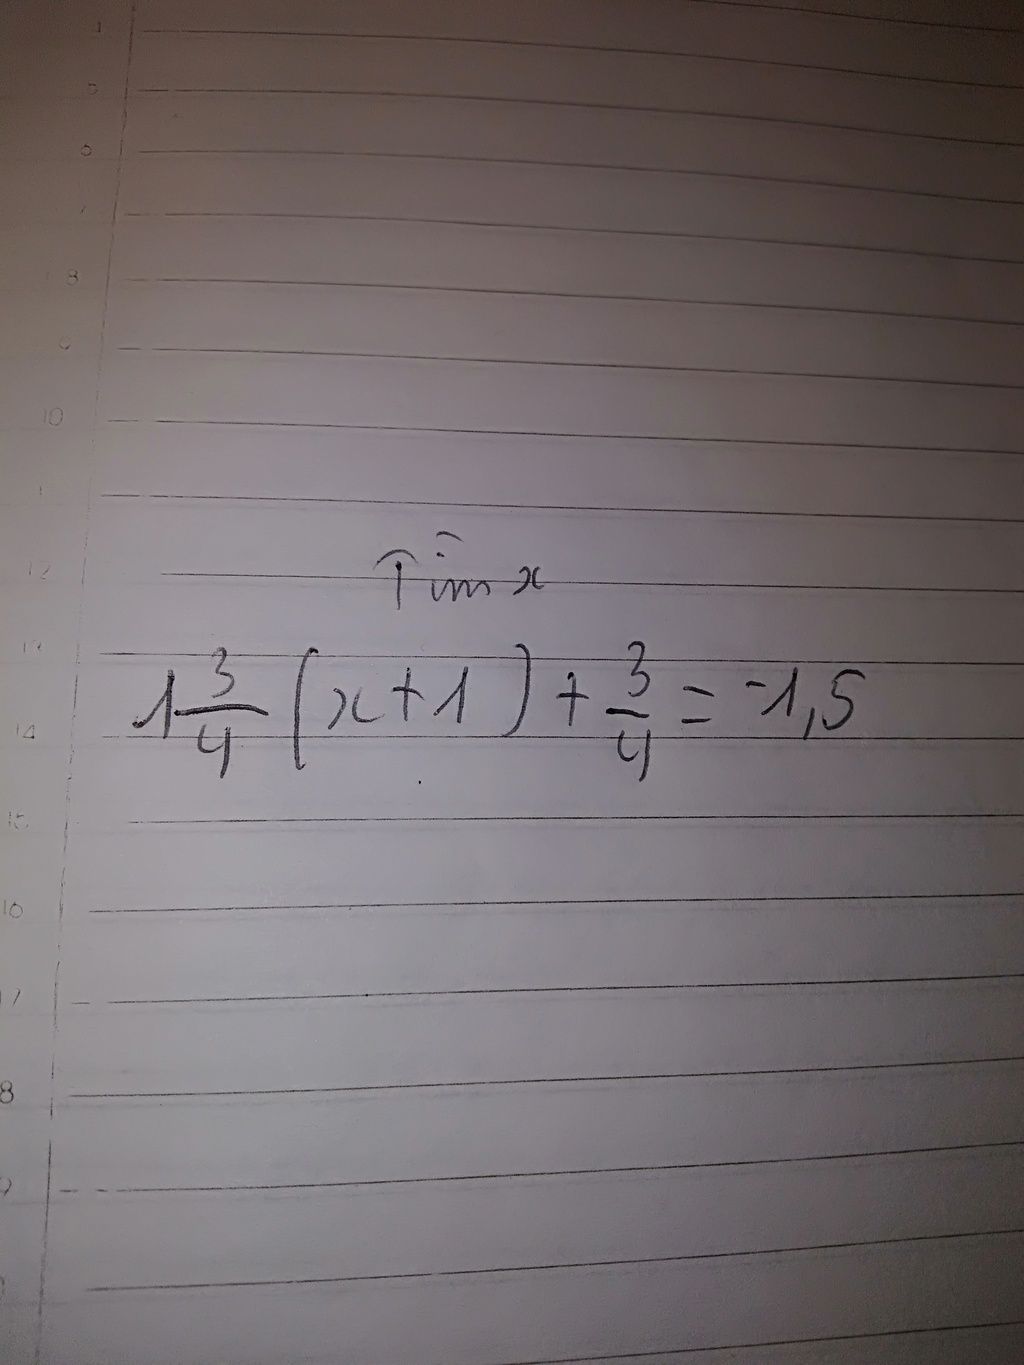 Tìm x
1 3/4 (x+1) + 3/4 = -1,5